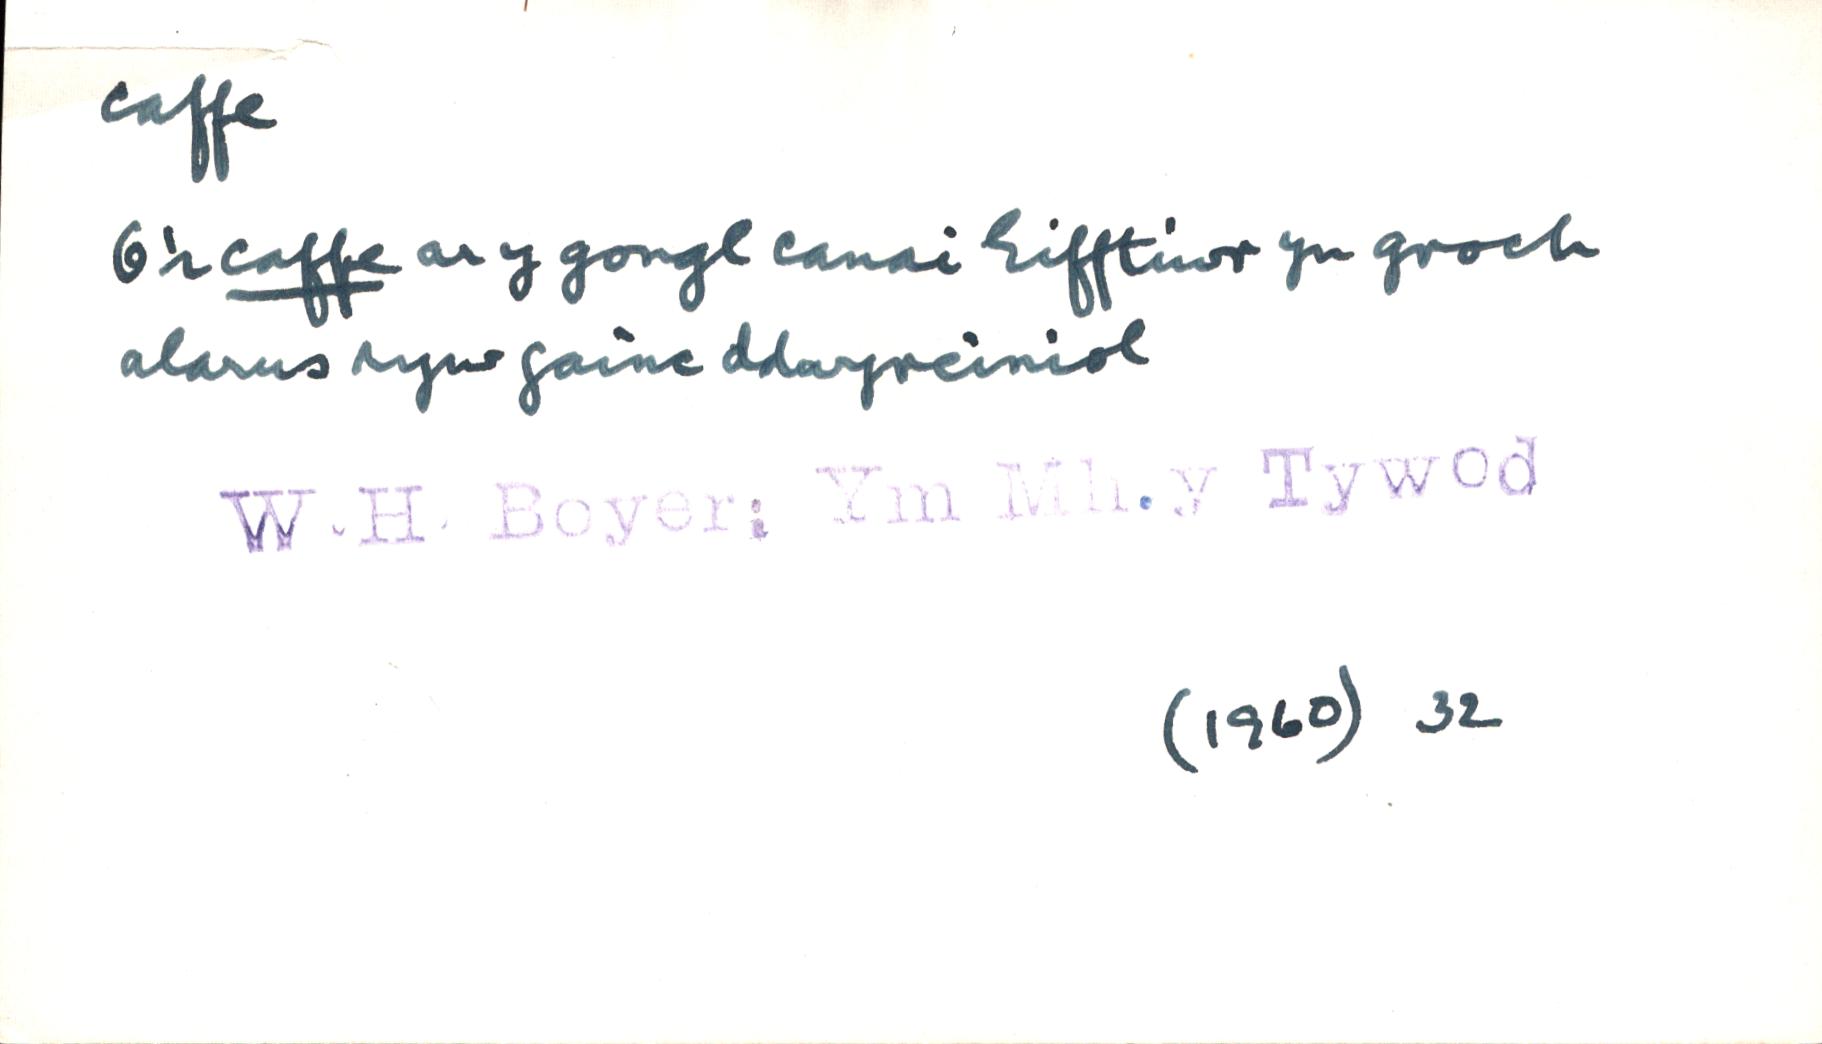 caffe
O'r caffe ar y gongl canai Eifftiwr yn groch
alarus ryw gainc ddwyreiniol
W.H. Boyer: Ym Mh.y Tywod
(1960) 32